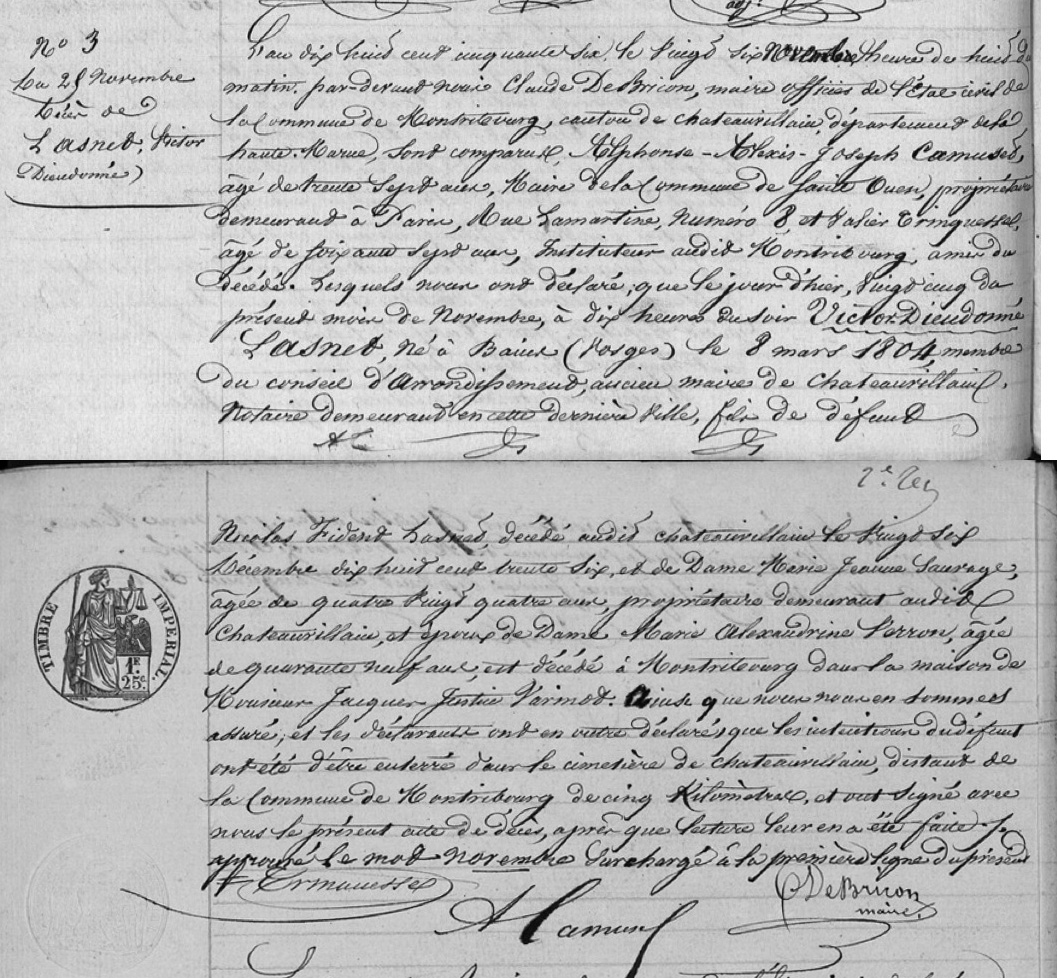 adj.
N° 3
Du 25 Novembre
Décès de
Lasnet, Victor
Dieudonné
L'an dix huit cent cinquante six, le Vingt six Novembre heure de huit du
matin. par-devant nous Claude DeBrion, maire officier de l'état civil de
la Commune de Montribourg, canton de chateauvillain, département de la
haute-Marne, sont comparus, Alphonse-Alexis-Joseph Camuset,
âgé de trente Sept ans, Maire de la Commune de Saint Ouen, propriétaire
demeurant à Paris, Rue Lamartine, Numéro 8 et Valier Trinquesse,
âgé de soixante Sept ans, Instituteur audit Montribourg, amis du
décédé. Lesquels nous ont déclaré, que le jour d'hier, Vingt cinq du
présent mois de Novembre, à dix heures du soir Victor-Dieudonné
Lasnet, né à Bains (Vosges) le 8 mars 1804, membre
du conseil d'Arrondissement, ancien maire de Chateauvillain,
Notaire demeurant en cette dernière Ville, fils de défunt
AC
2e
Nicolas Fident Lasnet, décédé audit chateauvillain le Vingt Six
Décembre dix huit cent trente Six, et de Dame Marie Jeanne Sauvage,
âgée de quatre Vingt quatre ans, propriétaire demeurant audit
Chateauvillain, et époux de Dame Marie Alexandrine Perron, âgée
de quarante neuf ans, est décédé à Montribourg dans la maison de
Monsieur Jacques Justin Varmot. Ainsi que nous nous en sommes
assuré; et les déclarants ont en outre déclaré, que les intentions du défunt
ont été d'être enterré dans le cimetière de chateauvillain, distant de
la Commune de Montribourg de cinq Kilomètres, et ont Signé avec
nous le présent acte de décès, après que lecture leur en a été faite. Je
approuvé le mot Novembre Surchargé à la première ligne du présent
TIMBRE IMPERIAL.
1F.
25c.
Trinquesse
A Camuset
C DeBrion
maire.